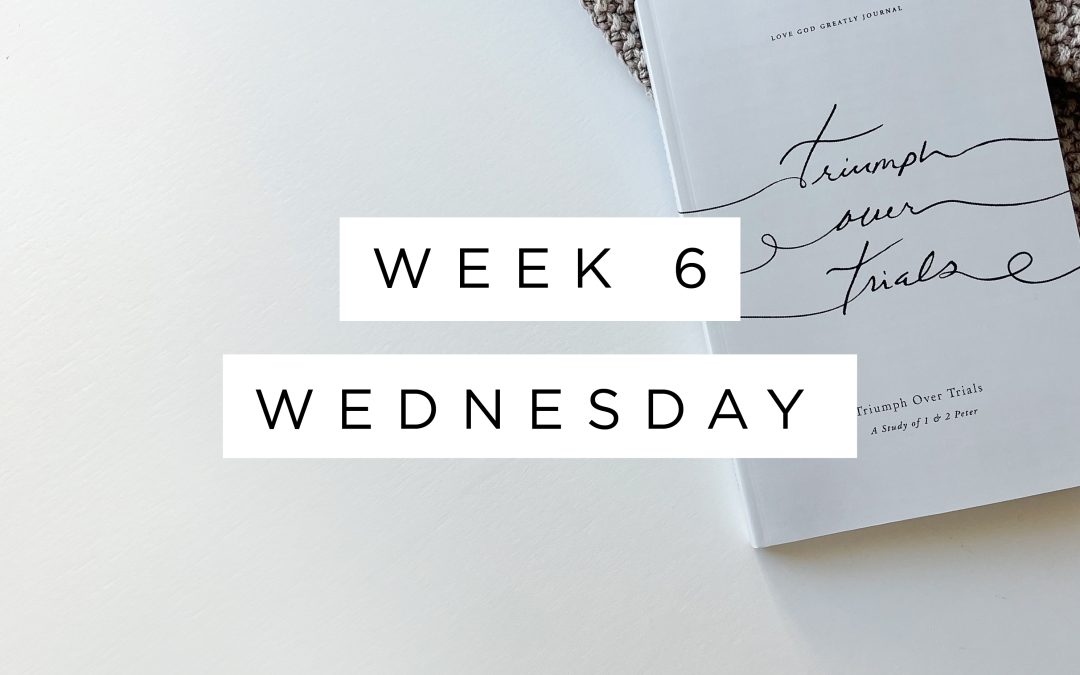 LOVE GOD GREATLY JOURNAL
Triumph
over
Trials
WEEK 6
WEDNESDAY
Triumph Over Trials
A Study of 1 & 2 Peter